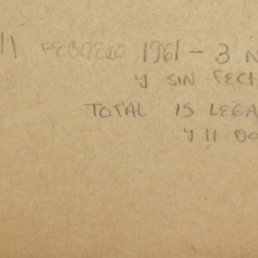 11 FEBRERO 1961 - 3 N
Y SIN FECH
TOTAL 15 LEGA
Y 11 DO